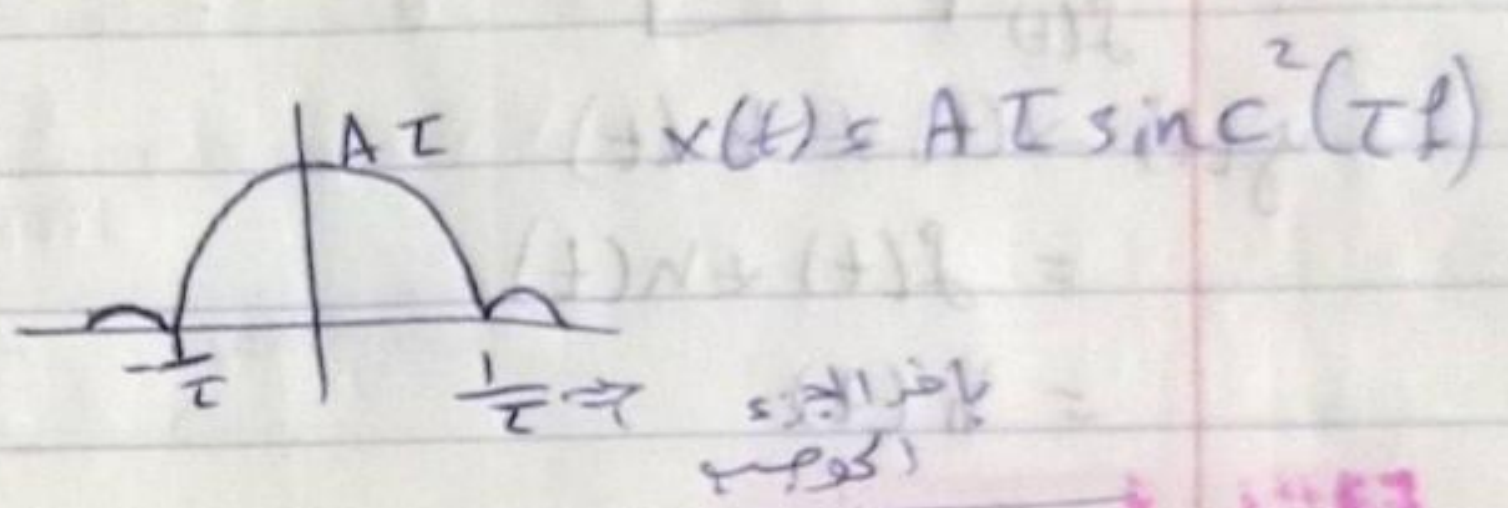 Aτ
x(t) = A τ sinc²(τf)
-1/τ
1/τ ⇒ ياخذ الجزء
الموجب